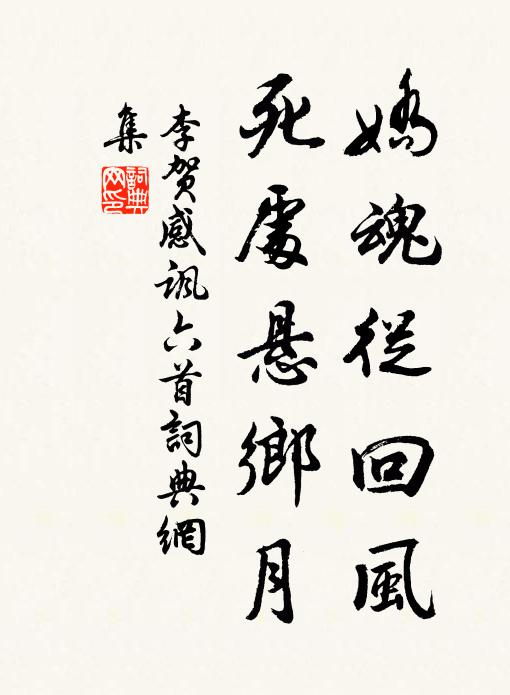 嬌魂從回風
死處懸鄉月
李賀感諷六首詞典網
集
詞典網印